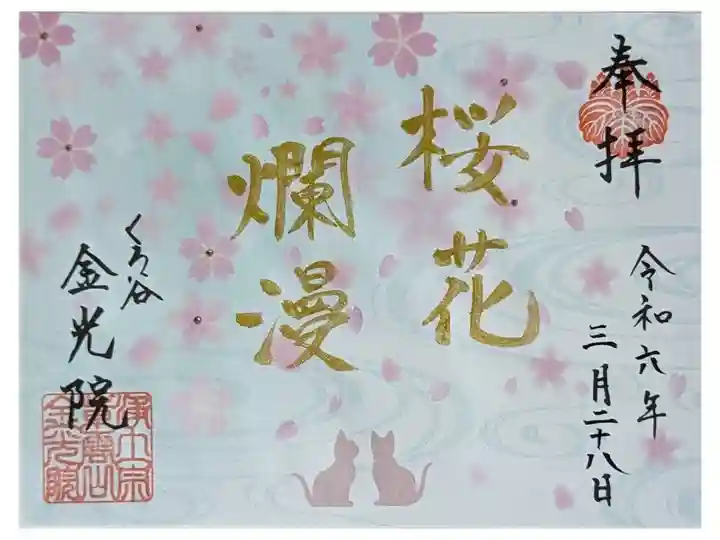 奉拝
令和六年
三月二十八日
桜花
爛漫
くろ谷
金光院
浄土宗
紫雲山
金光院